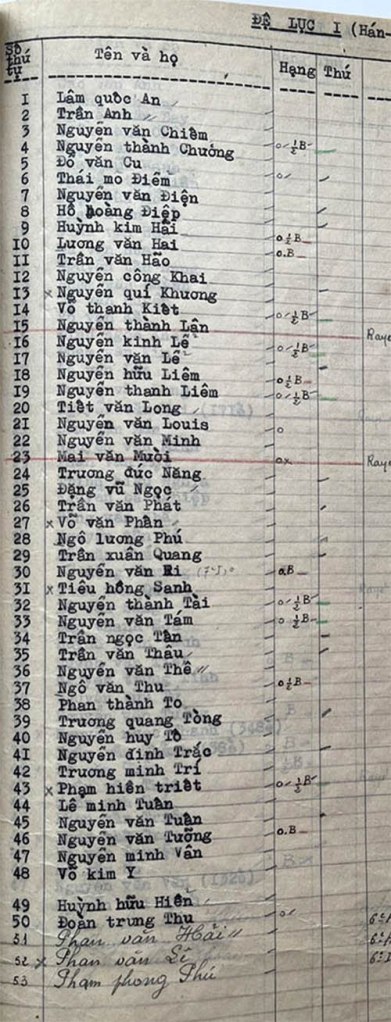 ĐỆ LỤC I (Hán-
Số thứ tự Tên và họ Hạng Thứ
1 Lâm quốc An
2 Trần Anh
3 Nguyễn văn Chiêm
4 Nguyễn thành Chương o ½B
5 Đỗ văn Cu
6 Thái mo Điểm o
7 Nguyễn văn Điện
8 Hồ hoàng Điệp
9 Huỳnh kim Hải
10 Lương văn Hai o ½B
11 Trần văn Hão o.B
12 Nguyễn công Khai
13 x Nguyễn quí Khương
14 Võ thanh Kiết o ½B
15 Nguyễn thành Lận
16 Nguyễn kinh Lễ o ½B
17 Nguyễn văn Lễ
18 Nguyễn hữu Liêm o ½B
19 Nguyễn thanh Liêm o ½B
20 Tiết văn Long
21 Nguyễn văn Louis o
22 Nguyễn văn Minh
23 Mai văn Mười ox
24 Trương đức Năng
25 Đặng vũ Ngọc
26 Trần văn Phát
27 x Võ văn Phần
28 Ngô lương Phú
29 Trần xuân Quang
30 Nguyễn văn Ri oB
31 x Tiêu hồng Sanh
32 Nguyễn thành Tài o ½B
33 Nguyễn văn Tám o ½B
34 Trần ngọc Tân
35 Trần văn Thâu
36 Nguyễn văn Thê
37 Ngô văn Thu o ½B
38 Phan thành To
39 Trương quang Tòng
40 Nguyễn huy Tô
41 Nguyễn đình Trác
42 Trương minh Trí
43 x Phạm hiền triết o ½B
44 Lê minh Tuấn
45 Nguyễn văn Tuấn
46 Nguyễn văn Tưởng o.B
47 Nguyễn minh Vân
48 Võ kim Y
49 Huỳnh hữu Hiên
50 Đoàn trung Thu o
51 Phan văn Hải
52 x Phan văn Sĩ
53 Phạm phong Phú